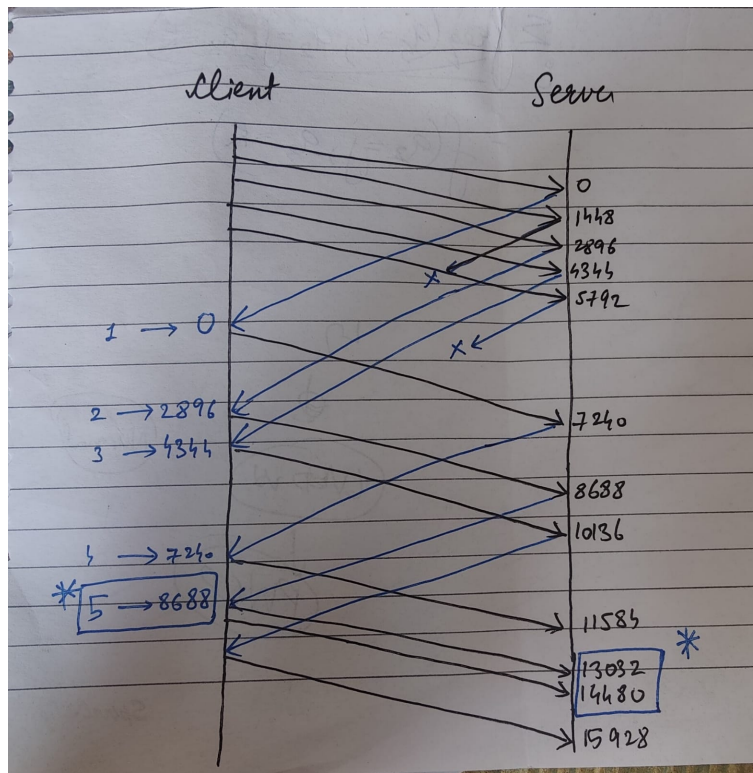 Client Server
0
1448
2896
4344
x
5792
1 → 0
x
7240
2 → 2896
3 → 4344
8688
10136
4 → 7240
* 5 → 8688
11584
*
13032
14480
15928